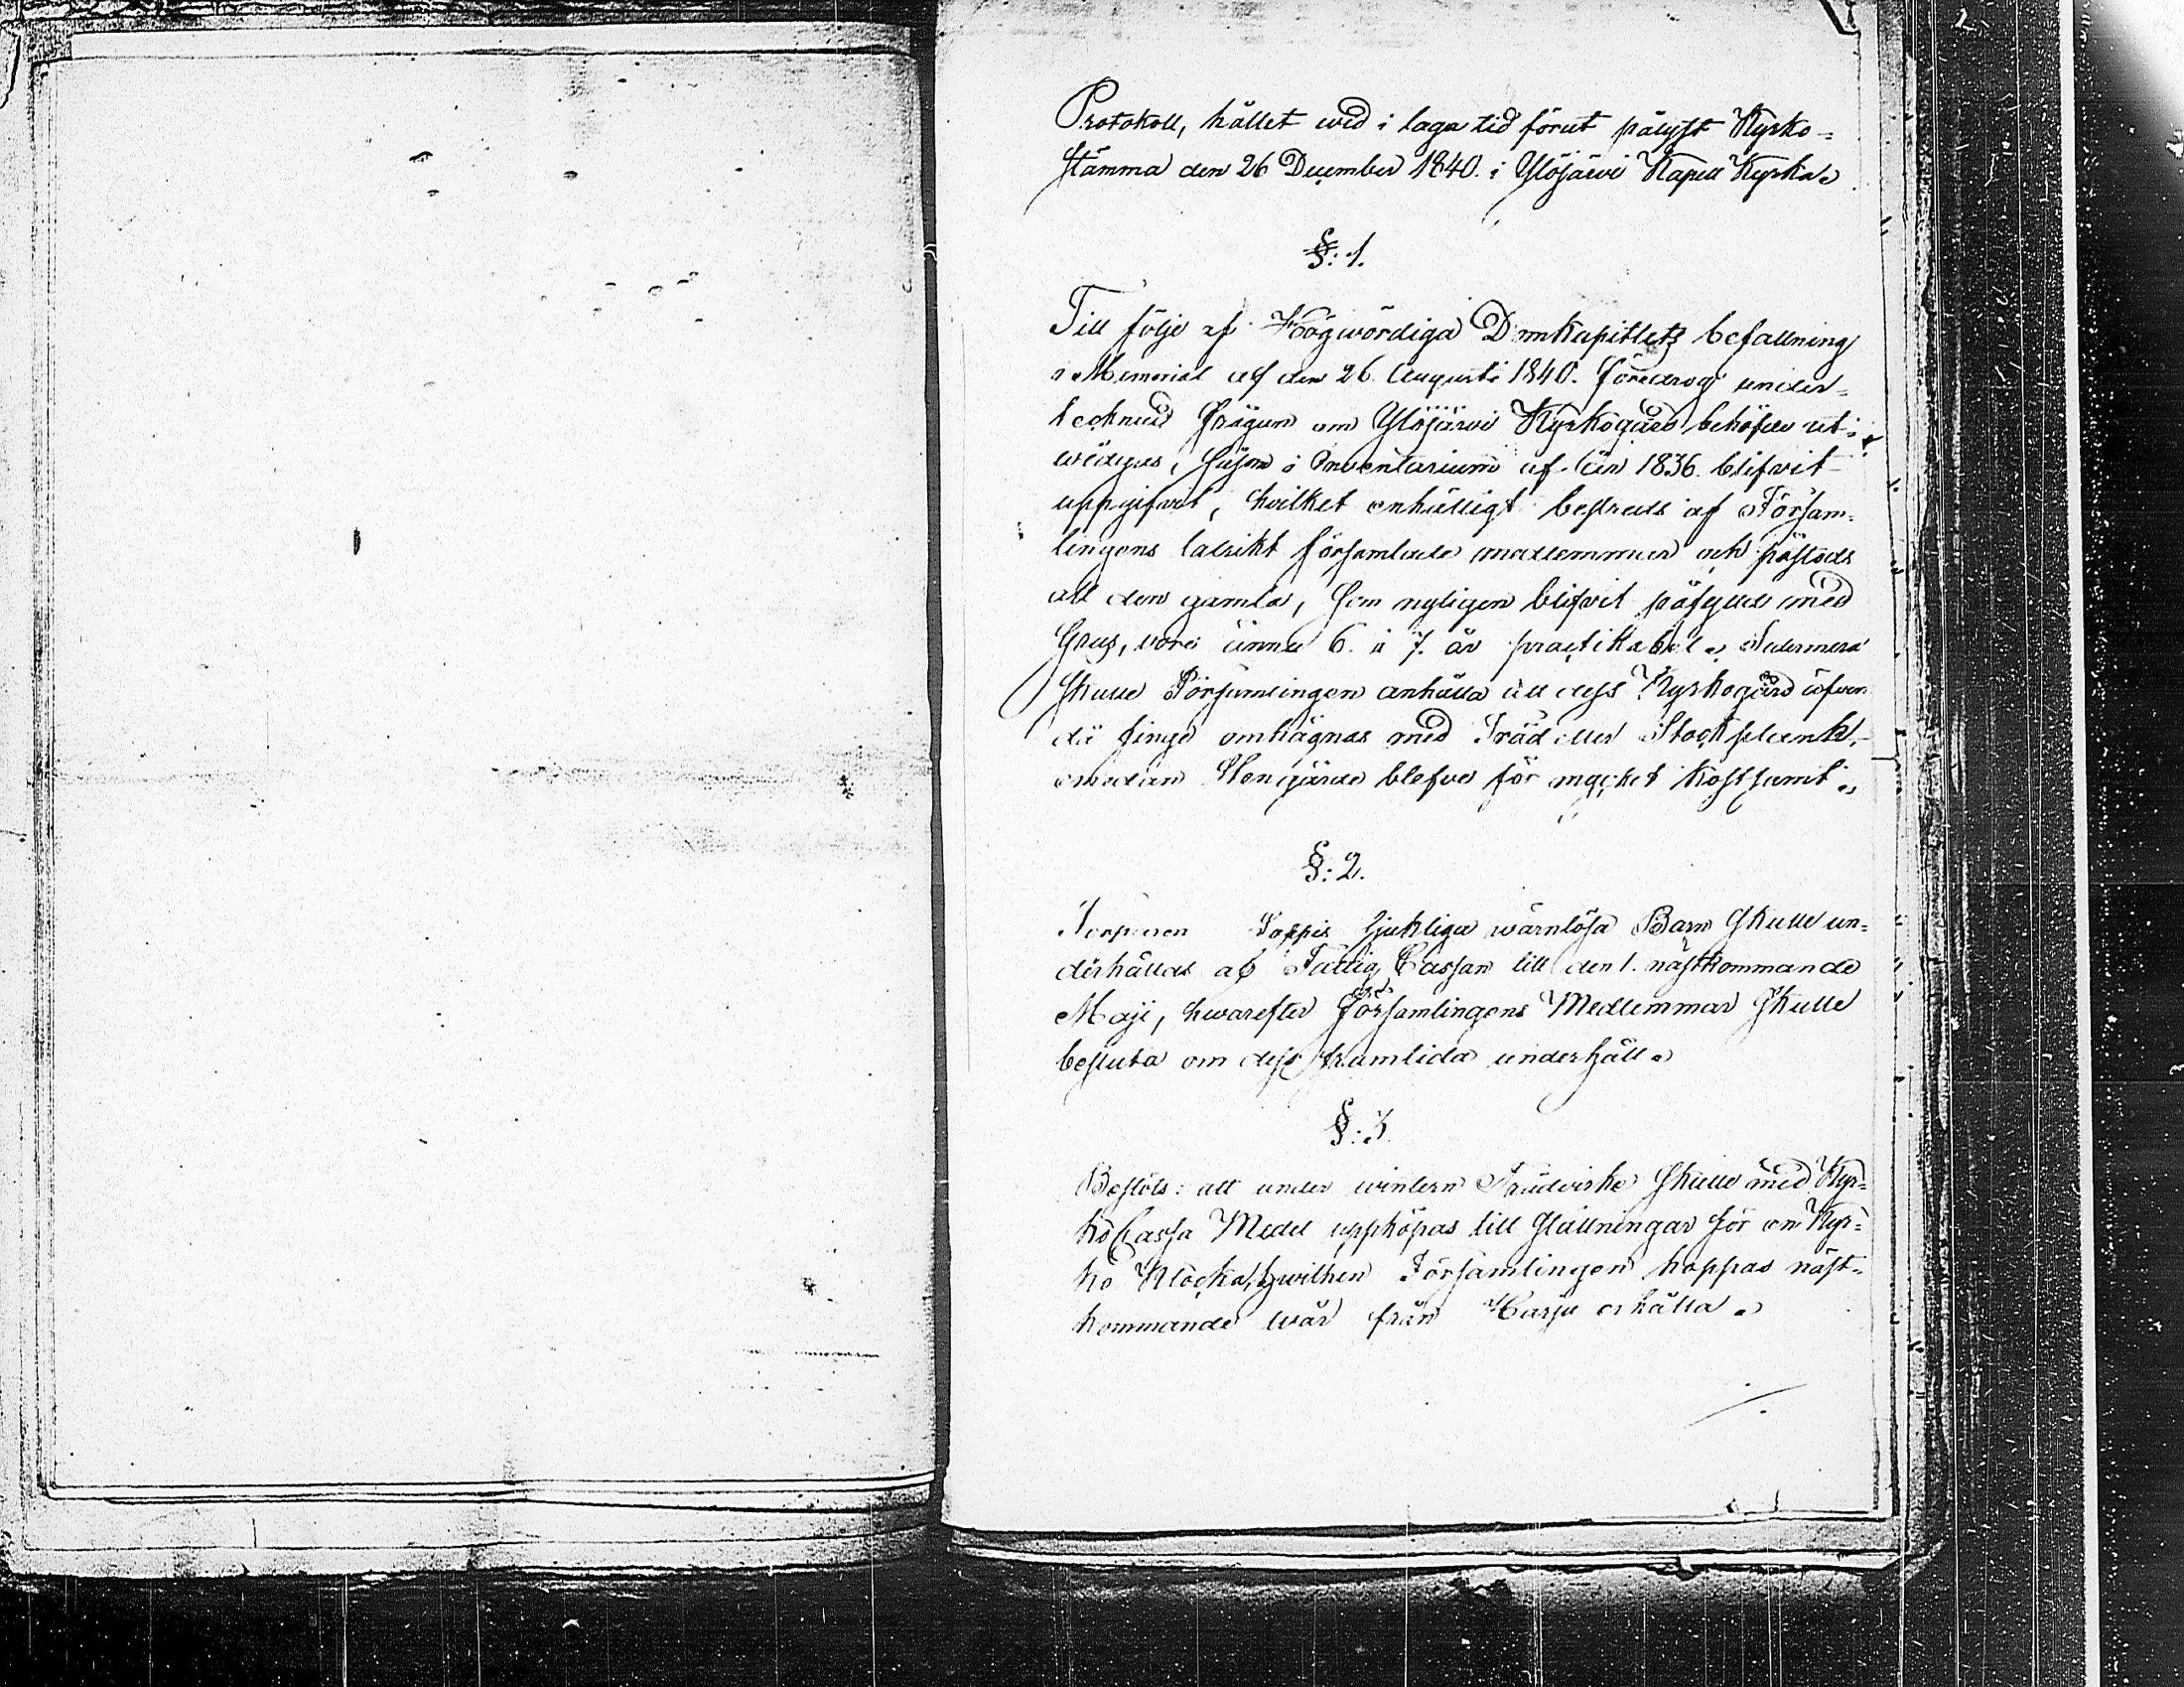 Protokoll, hållet wid i laga tid förut pålyst Kyrko-
stämma den 26 December 1840. i Ylöjärvi Kapell Kyrka.
§: 1.
Till följe af Högwördiga Domkapitlets befallning
i Memorial af den 26 Augusti 1840. föredrog under-
tecknad frågan om Ylöjärvi Kyrkogård behöfde ut-
widgas, såsom i Inventarium af år 1836. blifvit
uppgifvit, hvilket enhälligt bestreds af Försam-
lingens talrikt församlade medlemmar och påstods
att den gamla, som nyligen blifvit påfylld med
Grus, vore ännu 6. à 7. år practikabel. Sedermera
skulle Församlingen anhålla att dess Kyrkogård äfven
då finge omhägnas med Träd eller Stockplank,
emedan Stengärde blefve för mycket kostsamt.
§: 2.
Torparen Soppis sjukliga wärnlösa Barn skulle un-
derhållas af Fattig Cassan till den 1. nästkommande
Maji, hwarefter Församlingens Medlemmar skulle
besluta om dess framtida underhåll.
§: 3.
Beslöts: att under wintern Trädvirke skulle med Kyr-
ko Cassa Medel uppköpas till Ställningar för en Kyr-
ko Klocka, hwilken Församlingen hoppas näst-
kommande wår från Harju erhålla.
./.